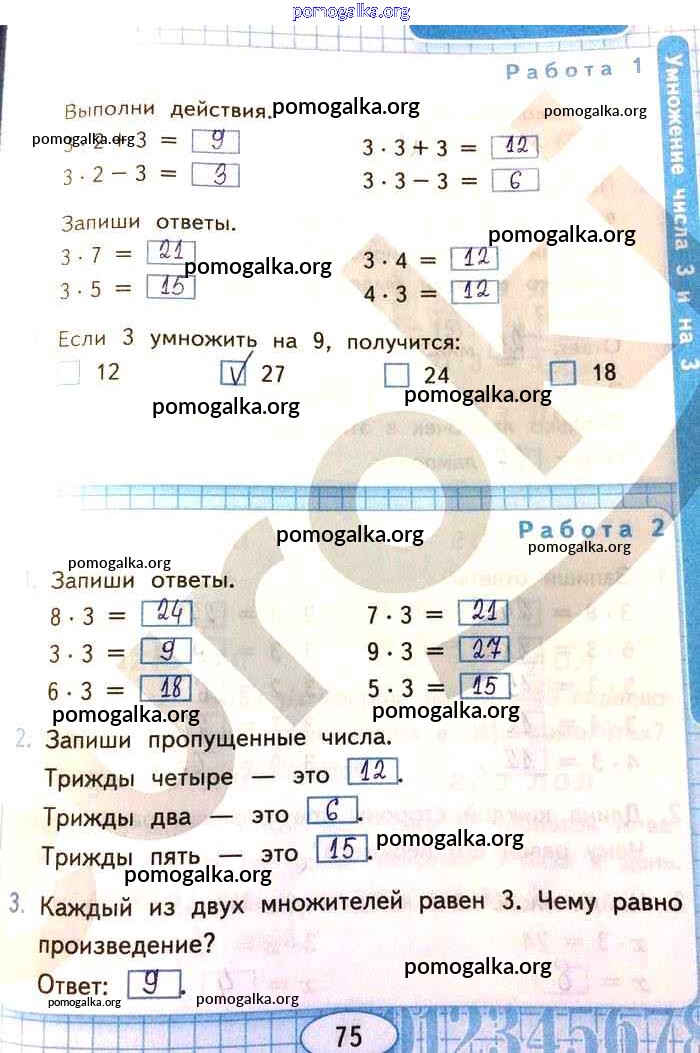 pomogalka.org
Работа 1
Выполни действия. pomogalka.org
pomogalka.org
3 · 2 + 3 = 9 3 · 3 + 3 = 12
3 · 2 − 3 = 3 3 · 3 − 3 = 6
Запиши ответы.
pomogalka.org
3 · 7 = 21 3 · 4 = 12
pomogalka.org
3 · 5 = 15 4 · 3 = 12
Если 3 умножить на 9, получится:
12 V 27 24 18
pomogalka.org pomogalka.org
Умножение числа 3 и на 3
pomogalka.org
Работа 2
pomogalka.org pomogalka.org
1. Запиши ответы.
8 · 3 = 24 7 · 3 = 21
3 · 3 = 9 9 · 3 = 27
6 · 3 = 18 5 · 3 = 15
pomogalka.org pomogalka.org
2. Запиши пропущенные числа.
Трижды четыре — это 12.
Трижды два — это 6.
pomogalka.org
Трижды пять — это 15.
pomogalka.org
3. Каждый из двух множителей равен 3. Чему равно
произведение?
pomogalka.org
Ответ: 9.
pomogalka.org pomogalka.org
75